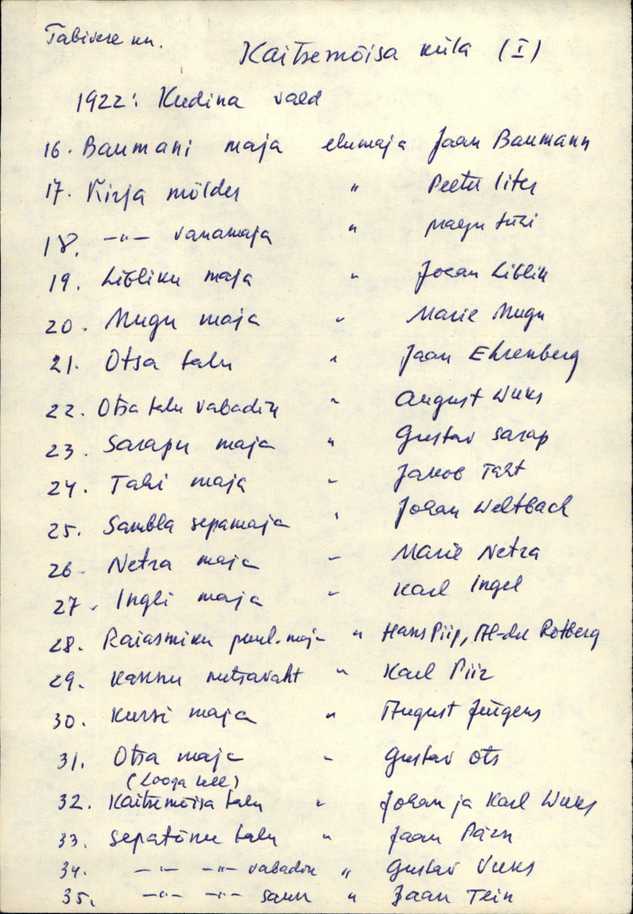 Tabivere kn.
Kaitsemõisa küla (I)
1922: Kudina vald
16. Baumani maja elumaja Jaan Baumann
17. Kirja mölder " Peeter
18. -"- vanamaja "
19. Libliku maja " Johan Liblik
20. Mugu maja " Marie Mugu
21. Otsa talu " Jaan Ehrenberg
22. Otsa talu vabadik " August Wuks
23. Sarapu maja " Gustav Sarap
24. Tahi maja " Jakob Taht
25. Sambla sepamaja " Johan Weltbach
26. Netra maja " Marie Netra
27. Ingli maja " Karl Ingel
28. maja " Hans Piip, Al-der Rotberg
29. metsavaht " Karl Piir
30. Kursi maja " August Jürgens
31. Otsa maja " Gustav Ots
(Looja kell)
32. Kaitsemõisa talu " Johan ja Karl Wuks
33. Sepatõnu talu " Jaan Pärn
34. -"- -"- vabadik " Gustav Vuks
35. -"- -"- saun " Jaan Tein